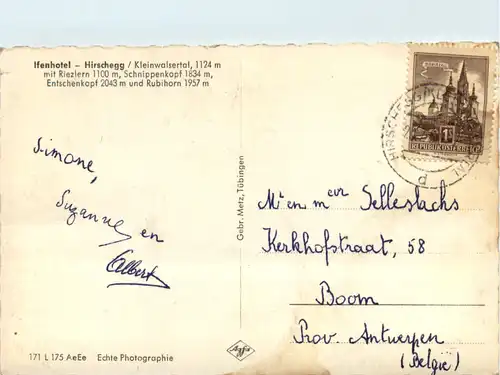 Ifenhotel – Hirschegg / Kleinwalsertal, 1124 m
mit Riezlern 1100 m, Schnippenkopf 1834 m,
Entschenkopf 2043 m und Rubihorn 1957 m
REPUBLIK ÖSTERREICH
Simone,
Suzanne en
Albert
Gebr. Metz, Tübingen
M' en meur Selleslachs
Kerkhofstraat, 58
Boom
Prov. Antwerpen
(België)
171 L 175 AeEe Echte Photographie
Agfa